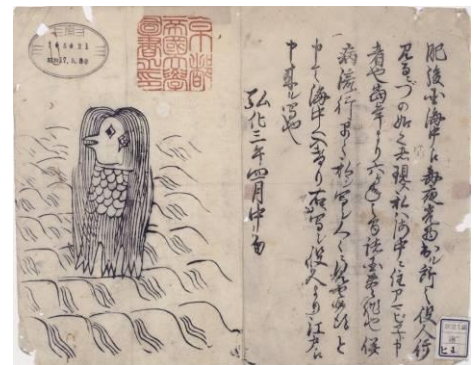 肥後国海中え毎夜光物出ル所之役人行
見るニづの如く者現ス私ハ海中ニ住アマビヱト申
者也当年より六ケ年之間諸国豊作也併
病流行早々私写シ人々ニ見セ候得と
申て海中へ入けり右写シ役人より江戸え
申来ル写也
弘化三年四月中旬
京都
帝國大學
圖書之印